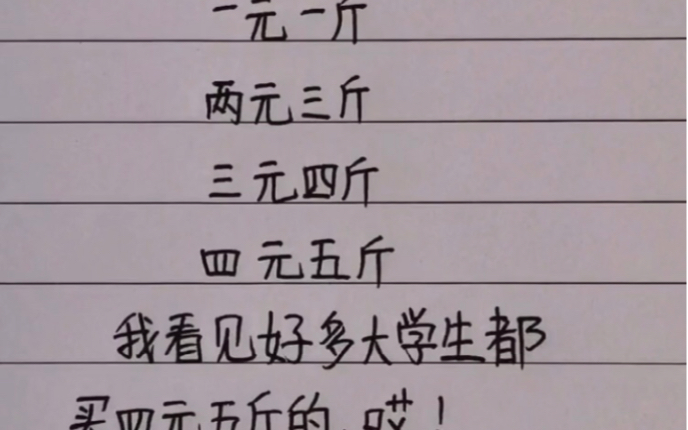 一元一斤
两元三斤
三元四斤
四元五斤
我看见好多大学生都
买四元五斤的,哎!